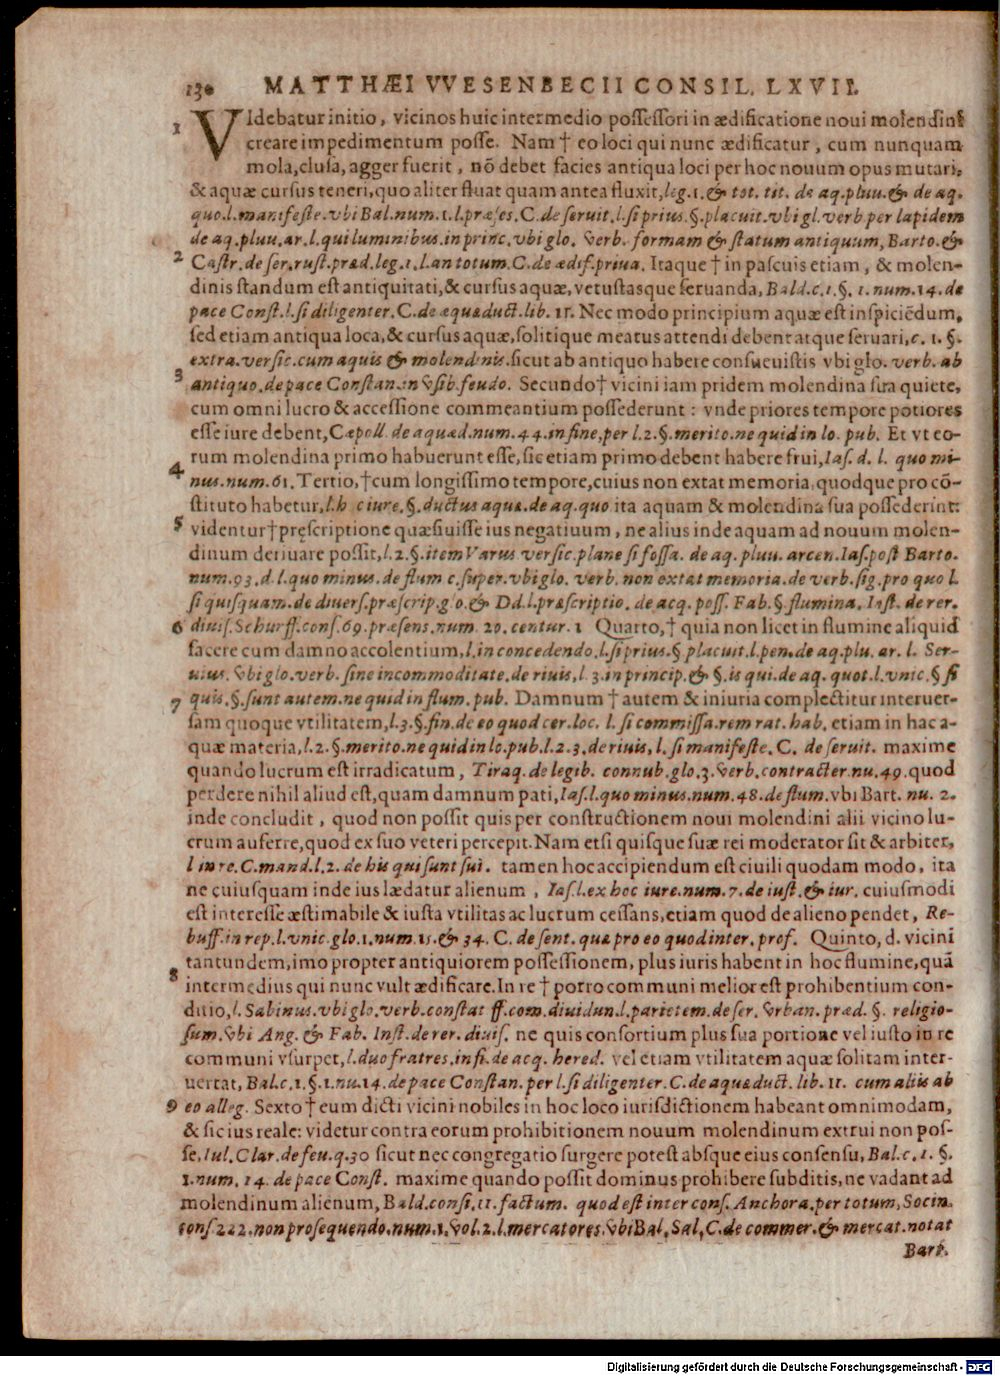 130 MATTHÆI VVESENBECII CONSIL. LXVII.
1 VIdebatur initio, vicinos huic intermedio possessori in ædificatione noui molendini
creare impedimentum posse. Nam † eo loci qui nunc ædificatur, cum nunquam
mola, clusa, agger fuerit, nō debet facies antiqua loci per hoc nouum opus mutari,
& aquæ cursus teneri, quo aliter fluat quam antea fluxit, leg. 1. & tot. tit. de aq. pluu. & de aq.
quo. l. manifeste. vbi Bal. num. 1. l. præses. C. de seruit. l. si prius. §. placuit. vbi gl. verb per lapidem
de aq. pluu. ar. l. qui luminibus. in princ. vbi glo. verb. formam & statum antiquum, Barto. &
2 Castr. de ser. rust. præd. leg. 1. l. an totum. C. de ædif. priua. Itaque † in pascuis etiam, & molen-
dinis standum est antiquitati, & cursus aquæ, vetustasque seruanda, Bald. c. 1. §. 1. num. 14. de
pace Const. l. si diligenter. C. de æquæduct. lib. 11. Nec modo principium aquæ est inspiciēdum,
sed etiam antiqua loca, & cursus aquæ, solitique meatus attendi debent atque seruari, c. 1. §.
extra. versic. cum aquis & molendinis. sicut ab antiquo habere consueuistis vbi glo. verb. ab
3 antiquo. de pace Constan. in vsib. feudo. Secundo † vicini iam pridem molendina sua quiete,
cum omni lucro & accessione commeantium possederunt : vnde priores tempore potiores
esse iure debent, Cæpoll. de aquæd. num. 44. in fine, per l. 2. §. merito. ne quid in lo. pub. Et vt eo-
rum molendina primo habuerunt esse, sic etiam primo debent habere frui, Ias. d. l. quo mi-
4 nus. num. 61. Tertio, † cum longissimo tempore, cuius non extat memoria, quodque pro cō-
stituto habetur, l. h c iure. §. ductus aquæ. de aq. quo ita aquam & molendina sua possederint:
5 videntur † pręscriptione quæsiuisse ius negatiuum, ne alius inde aquam ad nouum molen-
dinum deriuare possit, l. 2. §. item Varus versic. plane si fossa. de aq. pluu. arcen. Ias. post Barto.
num. 93. d. l. quo minus. de flum c. super. vbi glo. verb. non extat memoria. de verb. sig. pro quo l.
si quisquam. de diuers. præscrip. g. o. & Dd. l. præscriptio. de acq. poss. Fab. §. flumina. Inst. de rer.
6 diuis. Schurff. cons. 69. præsens. num. 20. centur. 1 Quarto, † quia non licet in flumine aliquid
facere cum damno accolentium, l. in concedendo. l. si prius. § placuit. l. pen. de aq. plu. ar. l. Ser-
uius. vbi glo. verb. sine incommoditate. de riuis, l. 3. in princip. & §. is qui. de aq. quot. l. vnic. § si
7 quis. §. sunt autem. ne quid in flum. pub. Damnum † autem & iniuria complectitur interuer-
sam quoque vtilitatem, l. 3. §. fin. de eo quod cer. loc. l. si commissa. rem rat. hab. etiam in hac a-
quæ materia, l. 2. §. merito. ne quid in lo. pub. l. 2. 3. de riuis, l. si manifeste. C. de seruit. maxime
quando lucrum est irradicatum, Tiraq. de legib. connub. glo. 3. verb. contracter. nu. 49. quod
perdere nihil aliud est, quam damnum pati, Ias. l. quo minus. num. 48. de flum. vbi Bart. nu. 2.
inde concludit, quod non possit quis per constructionem noui molendini alii vicino lu-
crum auferre, quod ex suo veteri percepit. Nam etsi quisque suæ rei moderator sit & arbiter,
l in re. C. mand. l. 2. de his qui sunt sui. tamen hoc accipiendum est ciuili quodam modo, ita
ne cuiusquam inde ius lædatur alienum, Ias. l. ex hoc iure. num. 7. de iust. & iur. cuiusmodi
est interesse æstimabile & iusta vtilitas ac lucrum cessans, etiam quod de alieno pendet, Re-
buff. in rep. l. vnic. glo. 1. num. 15. & 34. C. de sent. quæ pro eo quod inter. prof. Quinto, d. vicini
tantundem, imo propter antiquiorem possessionem, plus iuris habent in hoc flumine, quā
8 intermedius qui nunc vult ædificare. In re † porro communi melior est prohibentium con-
ditio, l. Sabinus. vbi glo. verb. constat ff. com. diuidun. l. parietem. de ser. vrban. præd. §. religio-
sum. vbi Ang. & Fab. Inst. de rer. diuis. ne quis consortium plus sua portione vel iusto in re
communi vsurpet, l. duo fratres. in fi. de acq. hered. vel etiam vtilitatem aquæ solitam inter-
uertat, Bal. c. 1. §. 1. nu. 14. de pace Constan. per l. si diligenter. C. de aquæduct. lib. 11. cum aliis ab
9 eo alleg. Sexto † cum dicti vicini nobiles in hoc loco iurisdictionem habeant omnimodam,
& sic ius reale: videtur contra eorum prohibitionem nouum molendinum extrui non pos-
se, Iul. Clar. de feu. q. 30 sicut nec congregatio surgere potest absque eius consensu, Bal. c. 1. §.
1. num. 14. de pace Const. maxime quando possit dominus prohibere subditis, ne vadant ad
molendinum alienum, Bald. consi. 11. factum. quod est inter cons. Anchora. per totum, Socin.
cons 222. non prosequendo. num. 1. vol. 2. l. mercatores. vbi Bal, Sal, C. de commer. & mercat. notat
Bart.
Digitalisierung gefördert durch die Deutsche Forschungsgemeinschaft - DFG